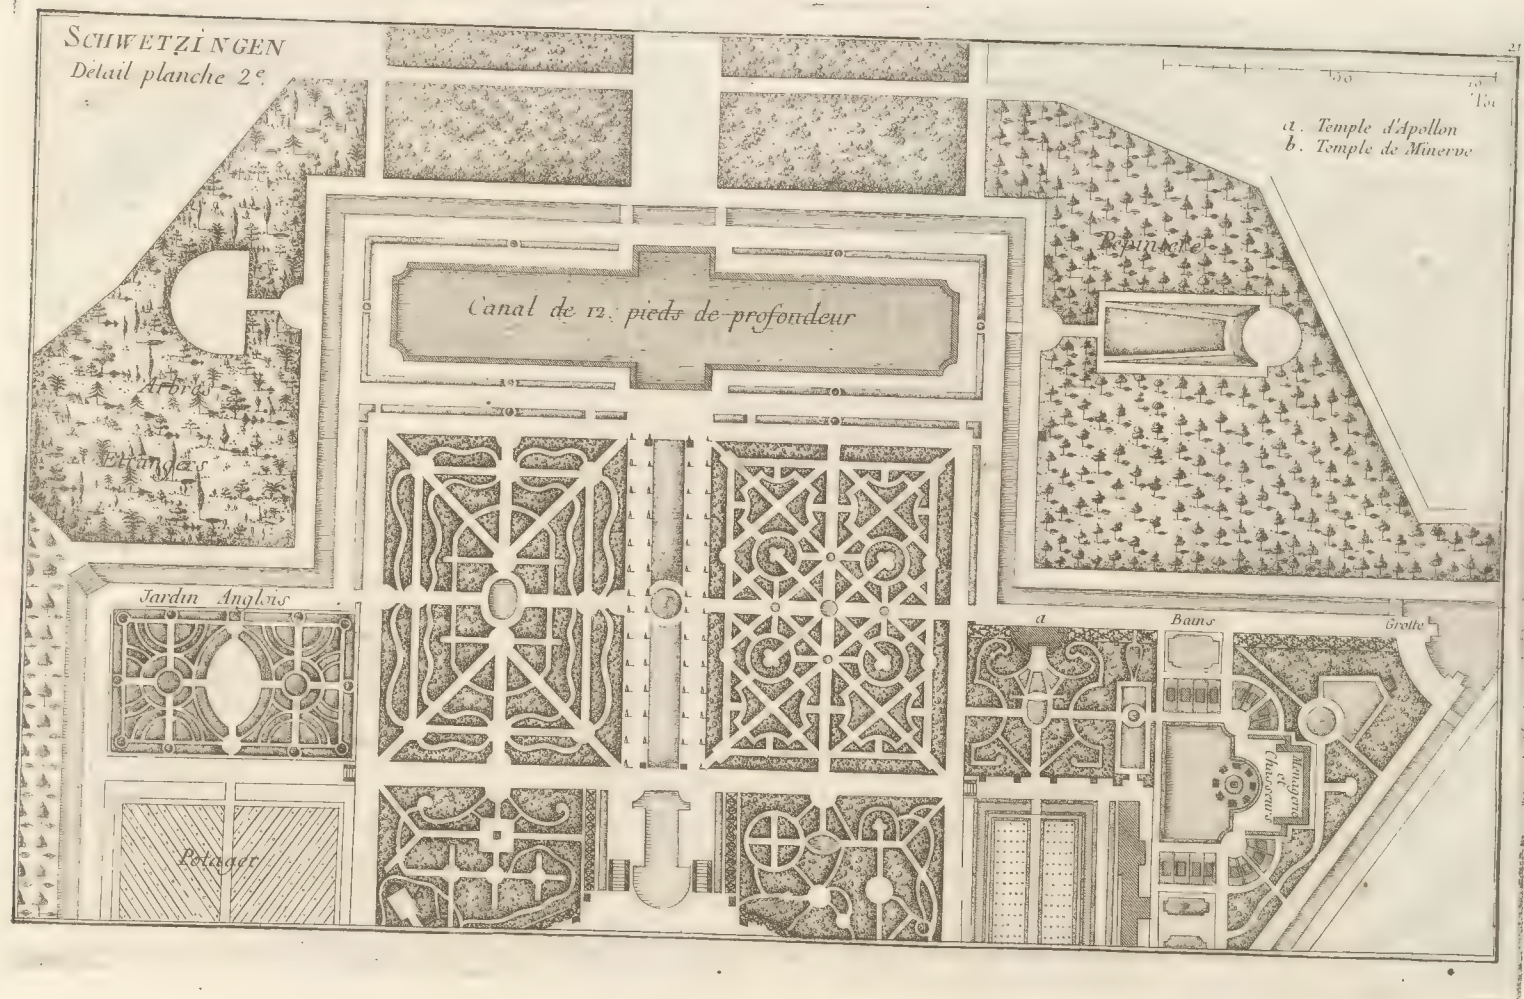 SCHWETZINGEN
Détail planche 2e.
21
a. Temple d'Apollon
b. Temple de Minerve
Pépiniere
Canal de 12. pieds de profondeur
Arbres
Etrangers
Jardin Anglois
a
Bains
Grotte
Menagerie
et
Potager